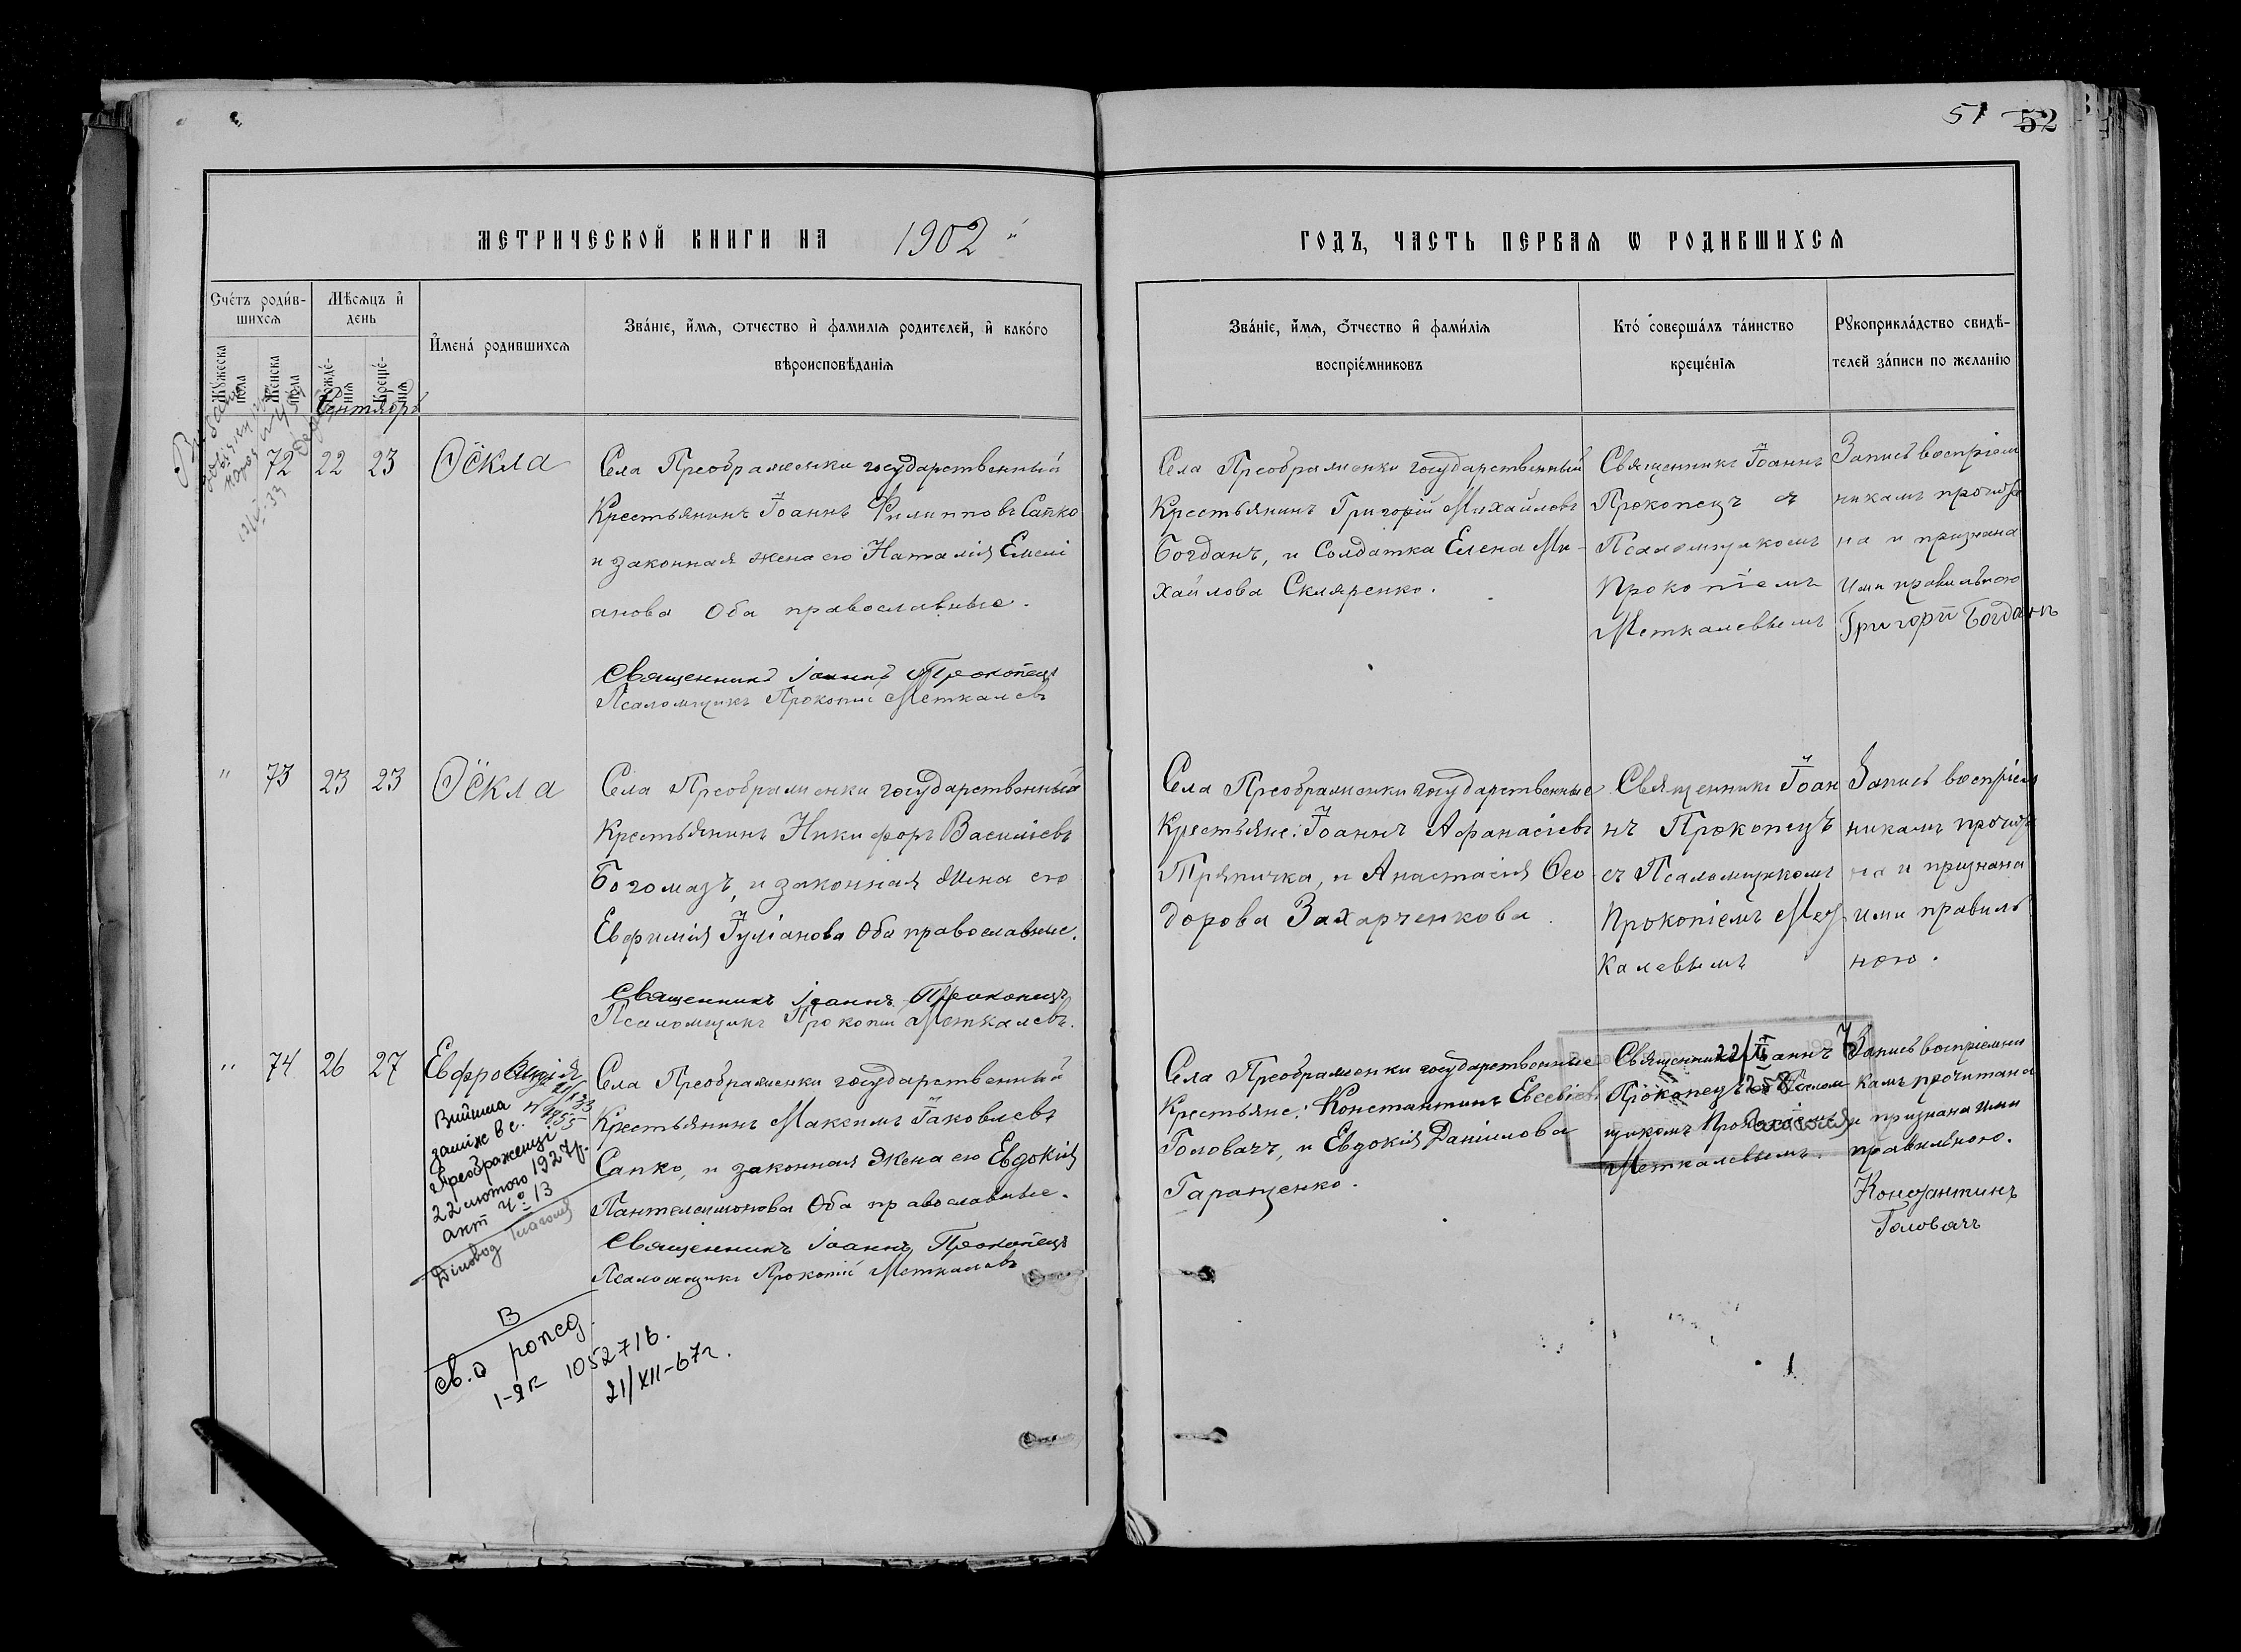 51 52
МЕТРИЧЕСКОЙ КНИГИ НА 1902 й
ГОДЪ, ЧАСТЬ ПЕРВАЯ Ѡ РОДИВШИХСЯ
Счетъ родив-
шихся
Мѹжеска
пола
Женска
пола
Мѣсяцъ и
день
Рожде-
нія
Креще-
нія
Имена родившихся
Званіе, имя, отчество и фамилія родителей, и какого
вѣроисповѣданія
Званіе, имя, отчество и фамилія
воспріемниковъ
Кто совершалъ таинство
крещенія
Рѹкоприкладство свидѣ-
телей записи по желанію
Сентябрь
72 22 23 Ѳёкла
Села Преображенки государственный
Крестьянинъ Іоаннъ Филипповъ Сапко
и законная жена его Наталія Емелі
анова Оба православные.
Священникъ Іоаннъ Прокопецъ
Псаломщикъ Прокопій Меткалевъ
Села Преображенки государственный
Крестьянинъ Григорій Михайловъ
Богданъ, и Солдатка Елена Ми-
хайлова Скляренко.
Священникъ Іоаннъ
Прокопецъ съ
Псаломщикомъ
Прокопіемъ
Меткалевымъ
Запись воспріем
никамъ прочита
на и признана
Ими правильною
Григорій Богданъ
" 73 23 23 Ѳёкла
Села Преображенки государственный
Крестьянинъ Никифоръ Василіевъ
Богомазъ, и законная жена его
Евфимія Іуліанова Оба православные.
Священникъ Іоаннъ Прокопецъ
Псаломщикъ Прокопій Меткалевъ.
Села Преображенки государственные
Крестьяне: Іоаннъ Афанасіевъ
Тряпичка, и Анастасія Ѳео
дорова Захарченкова.
Священникъ Іоан
нъ Прокопецъ
съ Псаломщикомъ
Прокопіемъ Мет
калевымъ
Запись воспріем
никамъ прочита
на и признана
ими правиль
ною.
" 74 26 27 Евфросинія
Села Преображенки государственный
Крестьянинъ Максимъ Іаковлевъ
Сапко, и законная Жена его Евдокія
Пантелеимонова Оба православные.
Священникъ Іоаннъ Прокопецъ
Псаломщикъ Прокопій Меткалевъ
Села Преображенки государственные
Крестьяне: Константинъ Евсевіевъ
Головачъ, и Евдокія Даніилова
Гаращенко.
Священникъ Іоаннъ
Прокопецъ съ Псалом
щикомъ Прокопіемъ
Меткалевымъ.
Запись воспріемни
камъ прочитана
и признана ими
правильною.
Константинъ
Головачъ
22/II
258
Вийшла
заміж в с.
Преображенці
22 лютого 1927р.
акт № 13
Діловод
В
св. о рожд.
1-ЯК 1052716.
21/XII-67г.